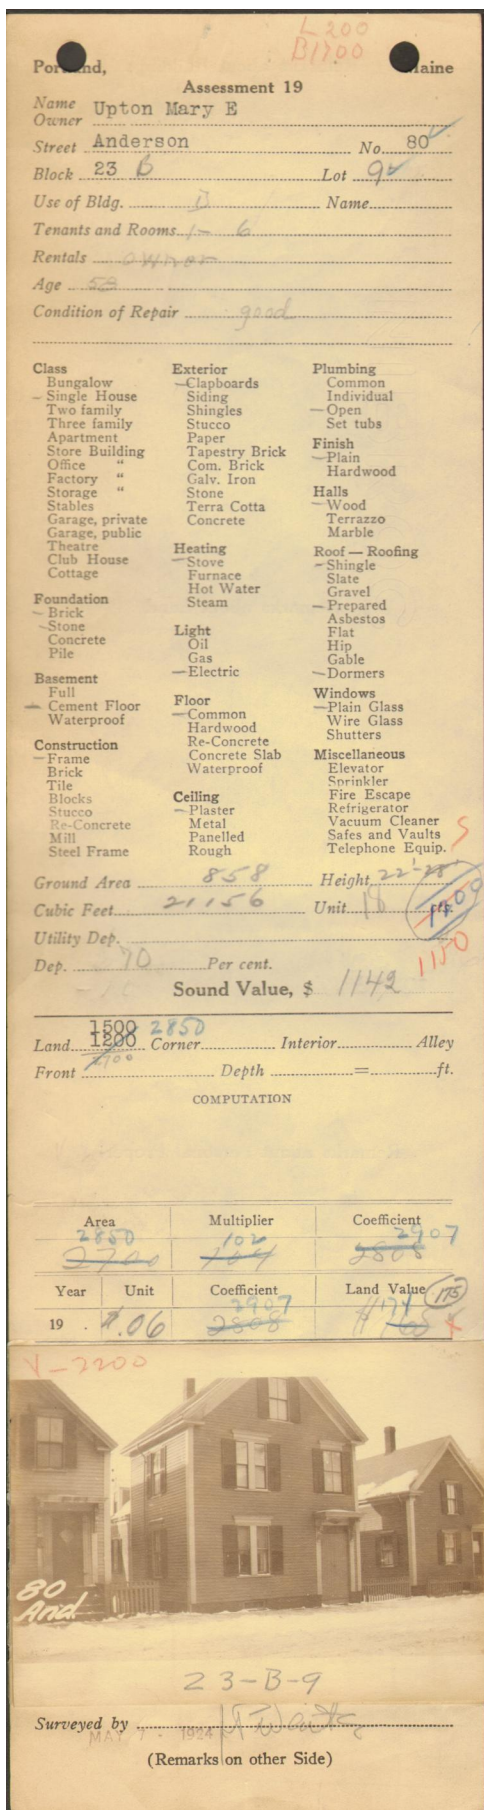 L 200
B 1700
Portland, Maine
Assessment 19
Name
Owner Upton Mary E
Street Anderson No. 80
Block 23 B Lot 9
Use of Bldg. D Name
Tenants and Rooms 1- 6
Rentals owner
Age 58
Condition of Repair good
Class
Bungalow
Single House
Two family
Three family
Apartment
Store Building
Office "
Factory "
Storage "
Stables
Garage, private
Garage, public
Theatre
Club House
Cottage
Foundation
Brick
Stone
Concrete
Pile
Basement
Full
Cement Floor
Waterproof
Construction
Frame
Brick
Tile
Blocks
Stucco
Re-Concrete
Mill
Steel Frame
Exterior
Clapboards
Siding
Shingles
Stucco
Paper
Tapestry Brick
Com. Brick
Galv. Iron
Stone
Terra Cotta
Concrete
Heating
Stove
Furnace
Hot Water
Steam
Light
Oil
Gas
Electric
Floor
Common
Hardwood
Re-Concrete
Concrete Slab
Waterproof
Ceiling
Plaster
Metal
Panelled
Rough
Plumbing
Common
Individual
Open
Set tubs
Finish
Plain
Hardwood
Halls
Wood
Terrazzo
Marble
Roof — Roofing
Shingle
Slate
Gravel
Prepared
Asbestos
Flat
Hip
Gable
Dormers
Windows
Plain Glass
Wire Glass
Shutters
Miscellaneous
Elevator
Sprinkler
Fire Escape
Refrigerator
Vacuum Cleaner
Safes and Vaults
Telephone Equip.
Ground Area 858 Height 22'-28'
Cubic Feet 21156 Unit 18 cts.
Utility Dep.
1150
Dep. 70 Per cent.
Sound Value, $ 1142
1500 2850
Land 1200 Corner Interior Alley
2700
Front Depth = ft.
COMPUTATION
Area Multiplier Coefficient
2850 102 2907
2700 104 2808
Year Unit Coefficient Land Value 175
2907 174
19 . $.06 2808 $168
V-2200
80
And.
23-B-9
Surveyed by
MAY 7 - 1924
(Remarks on other Side)